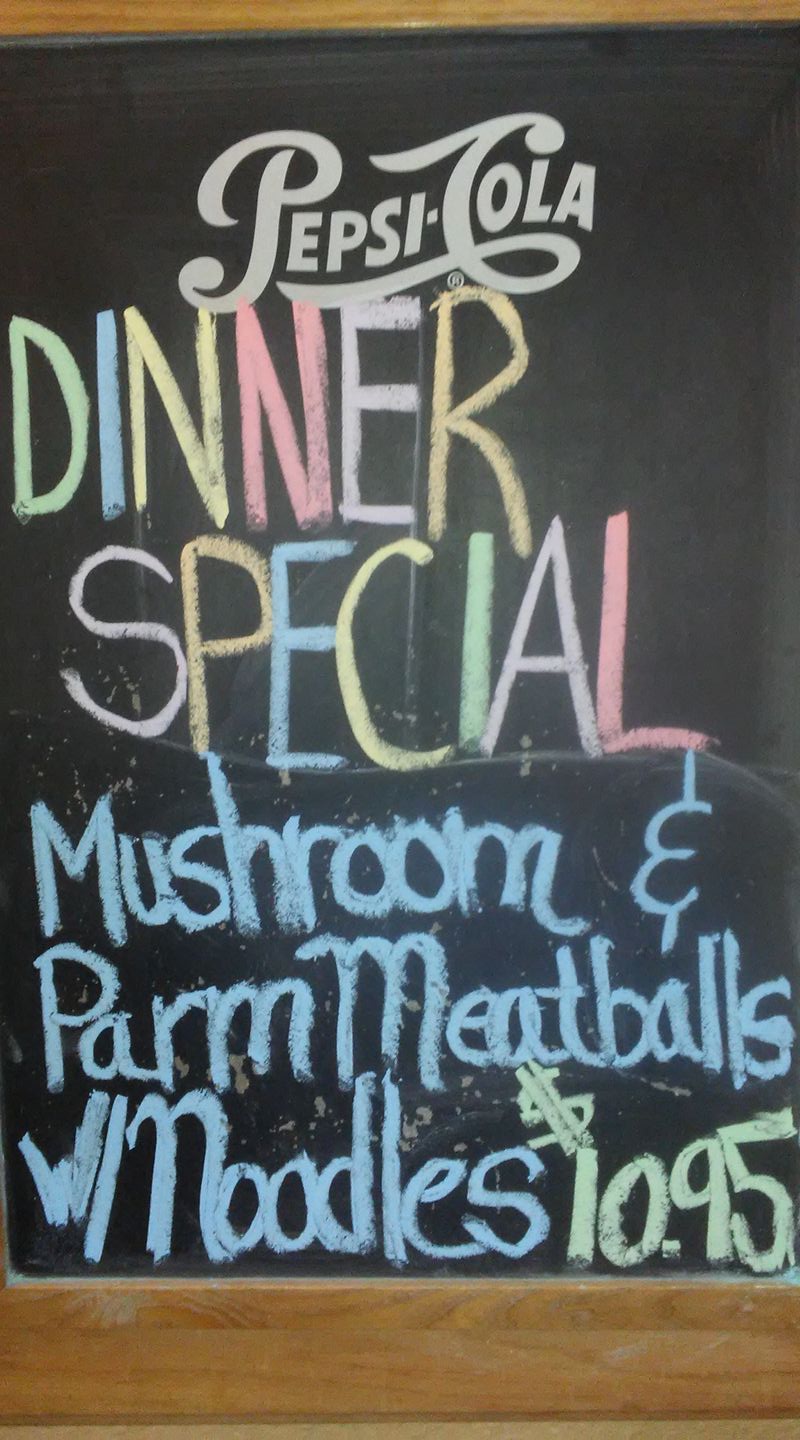 PEPSI-COLA®
DINNER
SPECIAL
Mushroom &
Parm Meatballs
w/Noodles $10.95